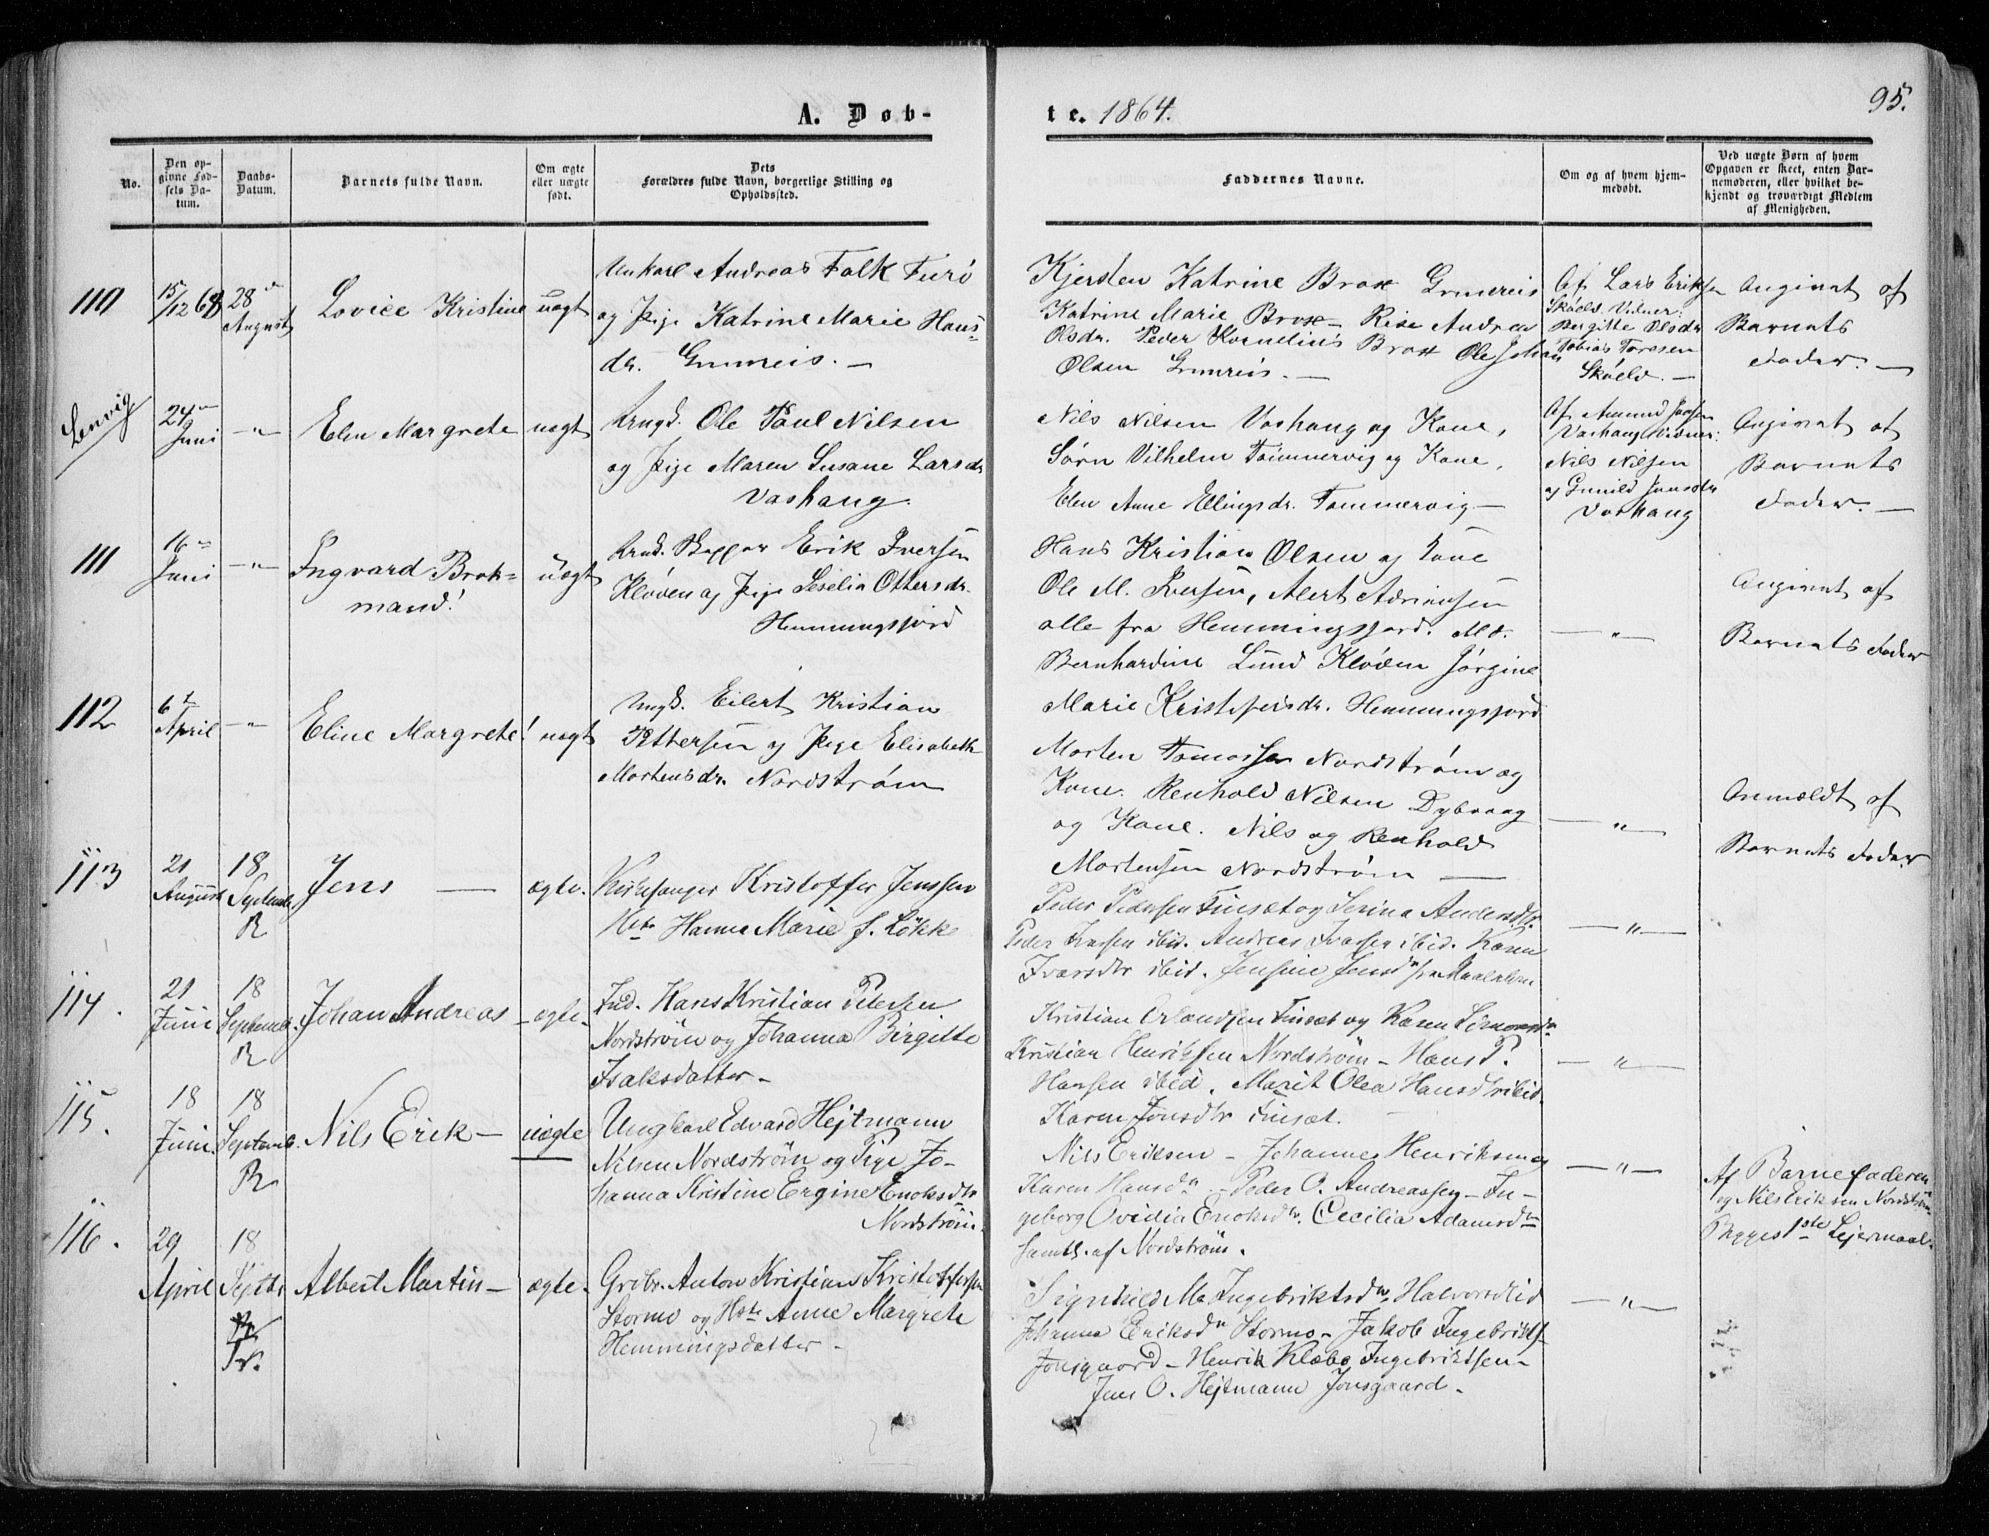 A. Døb-
te. 1864.
95.
No.
Den op-
givne Fød-
sels Da-
tum.
Daabs-
Datum.
Barnets fulde Navn.
Om ægte
eller uægte
født.
Dets
Forældres fulde Navn, borgerlige Stilling og
Opholdssted.
Faddernes Navne.
Om og af hvem hjem-
medøbt.
Ved uægte Børn af hvem
Opgaven er skeet, enten Bar-
nemoderen, eller hvilket be-
kjendt og troværdigt Medlem
af Menigheden.
110
15/12 63
28
August
Lovice Kristine
uægt
Unkarl Andreas Falk Furö
og Pige Katrine Marie Hans=
dr. Grunreis. —
Kjersten Katrine Brox Grunreis
Katrine Marie Brox – Rise Andrea
Olsdr. Peder Kornelius Brox Ole Johan
Olsen Grunreis. —
Af Lars Eriksen
Skóeld. Vidner:
Bergitte Olsdr
Tobias Toresen
Skóeld. —
Angivet af
Barnets
Fader. —
Lenvig
24
Juni
— " —
Elen Margrete
uægt
Ungk. Ole Paul Nilsen
og Pige Maren Susane Larsdr
Vashaug.
Nils Nilsen Vashaug og Kone,
Sörn Vilhelm Tömmervig og Kone,
Elen Anne Ellingsdr. Tømmervig —
Af Amund
Vashaug Vidner:
Nils Nilsen
og Gunild
Vashaug
Angivet at
Barnets
Fader. —
111
16
Juni
— " —
Ingvard Brok=
mand!
uægt
Erik Iversen
Klöven og Pige Seselia Ottersdr.
Hemmingsjord
Hans Kristian Olsen og Kone
Ole M. Iversen, Alert Adriansen
alle fra Hemmingsjord. Md.
Bernhardine Lund Klöven Jörgine
Marie Kristofersdr. Hemmingsjord
— " —
Angivet af
Barnets Fader
112
6
April
— " —
Eline Margrete!
uægt
Ungk. Eilert Kristian
Pettersen og Pige Elisabeth
Mortensdr. Nordström
Morten Tomassen Nordström og
Kone. Renhold Nilsen Dybvaag
og Kone. Nils og Renhold
Mortensen Nordström —
— " —
Anmældt af
Barnets Fader
113
21
August
18
Septembr
R
Jens —
ægte.
Kirkesanger Kristoffer Jenssen
Hstr Hanna Marie f. Lökke
Peder Pedersen Finset og Serina Andersdtr.
Peder Ivarsen ibid. Andreas Ivarsen ibid. Karen
Ivarsdtr ibid. Jensine Jensdtr
— " —
114.
21
Juni
18
Septembr.
R
Johan Andreas —
ægte.
Ind. Hans Kristian Petersen
Nordström og Johanna Birgitte
Isaksdatter —
Kristian Erlandsen Finset og Karen Simonsdtr
Kristian Henriksen Nordström – Hans P.
Hansen ibid. Marit Olea Hansdtr ibid.
Karen Jonsdtr Finset.
— " —
115.
18
Juni
18
Septemb.
R
Nils Erik —
uægte
Ungkarl Edvard Hejtmann
Nilsen Nordström og Pige Jo-
hanna Kristine Ergine Enoksdtr
Nordström.
Nils Eriksen – Johannes Henriksen og
Karen Hansdtr – Peder O. Andreassen – In-
geborg Ovidia Enoksdtr. Cecilia Adamsdtr
samtl. af Nordström.
— " —
Af Barnefaderen
og Nils Eriksen Nordström
Begges 1ste Lejermaal.
116.
29
April
18
Septbr
Tr.
Albert Martin —
ægte.
Grdbr. Anton Kristian Kristoffersen
Stormo og Hstr Anne Margrete
Hemmingsdatter —
Signhild M. Ingebriktsdtr Halvorsdlid
Johanna Eriksdtr Stormo – Jakob Ingebrikts.
Jonsgaard – Henrik Klæbo Ingebriktsen –
Jens O. Hejtmann Jonsgaard.
— " —